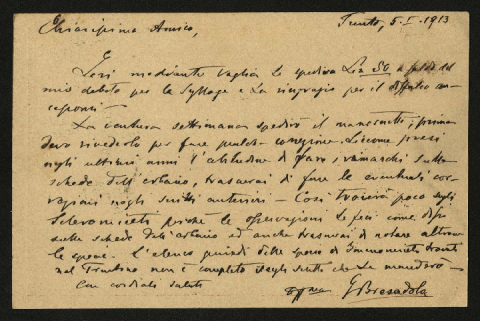 Chiarissimo Amico, Trento, 5-I-1913
Ieri mediante vaglia Le spediva Lire 50 a saldo del
mio debito per la Sylloge e La ringrazio per il disturbo
La ventura settimana spedirò il manoscritto; prima
devo rivederlo per fare qualche correzione. Siccome presi
negli ultimi anni l'abitudine di fare i rimarchi sulle
schede dell'erbario, trascurai di fare le eventuali cor-
rezioni negli scritti anteriori - Così troverà poco sugli
perchè le osservazioni le feci come dissi
sulle schede dell'erbario ed anche trascurai di notare
le specie. L'elenco quindi delle specie di Imenomiceti trovati
nel Trentino non è completo negli scritti che Le manderò -
Con cordiali saluti
G Bresadola